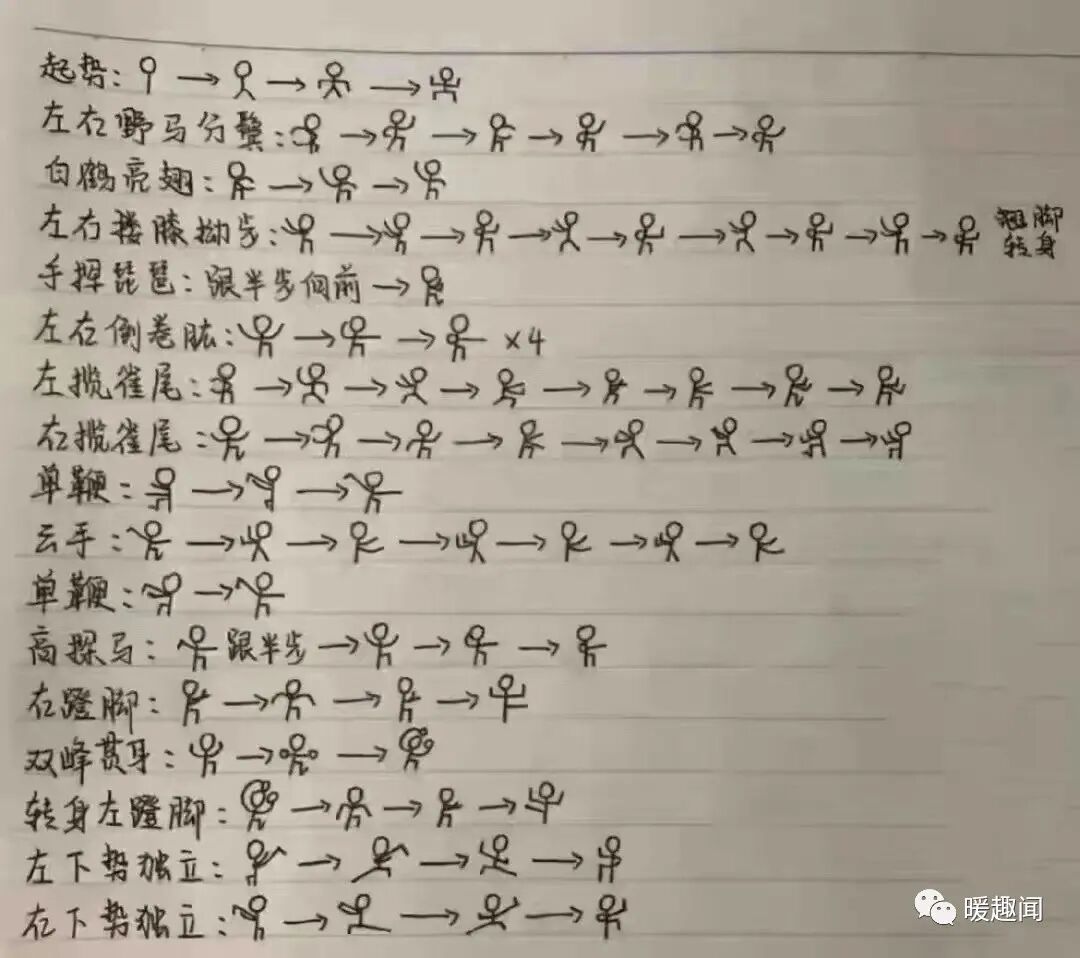 起势:
左右野马分鬃:
白鹤亮翅:
左右搂膝拗步: 翘脚
转身
手挥琵琶:跟半步向前
左右倒卷肱: ×4
左揽雀尾:
右揽雀尾:
单鞭:
云手:
单鞭:
高探马: 跟半步
右蹬脚:
双峰贯耳:
转身左蹬脚:
左下势独立:
右下势独立:
暖趣闻